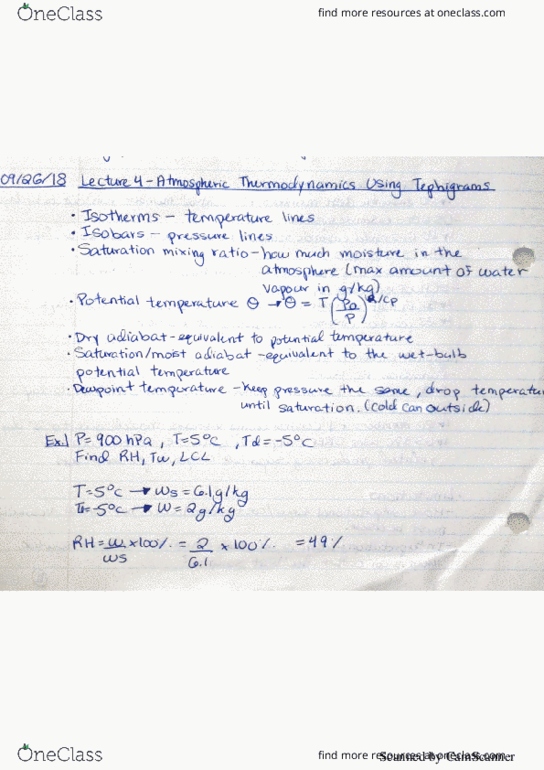 OneClass
find more resources at oneclass.com
09/26/18 Lecture 4 - Atmospheric Thermodynamics Using Tephigrams
• Isotherms - temperature lines
• Isobars - pressure lines
• Saturation mixing ratio - how much moisture in the
atmosphere (max amount of water
vapour in g/kg)
• Potential temperature Θ → Θ = T(Po/P)^R/cp
• Dry adiabat - equivalent to potential temperature
• Saturation/moist adiabat - equivalent to the wet-bulb
potential temperature
• Dewpoint temperature - keep pressure the same, drop temperatur
until saturation. (cold can outside)
Ex.1 P= 900 hPa, T=5°C, Td=-5°C
Find RH, Tw, LCL
T=5°C → ws = 6.1g/kg
Td=-5°C → w = 2g/kg
RH = w/ws x100% = 2/6.1 x 100% = 49%
OneClass
find more resources at oneclass.com
Scanned by CamScanner